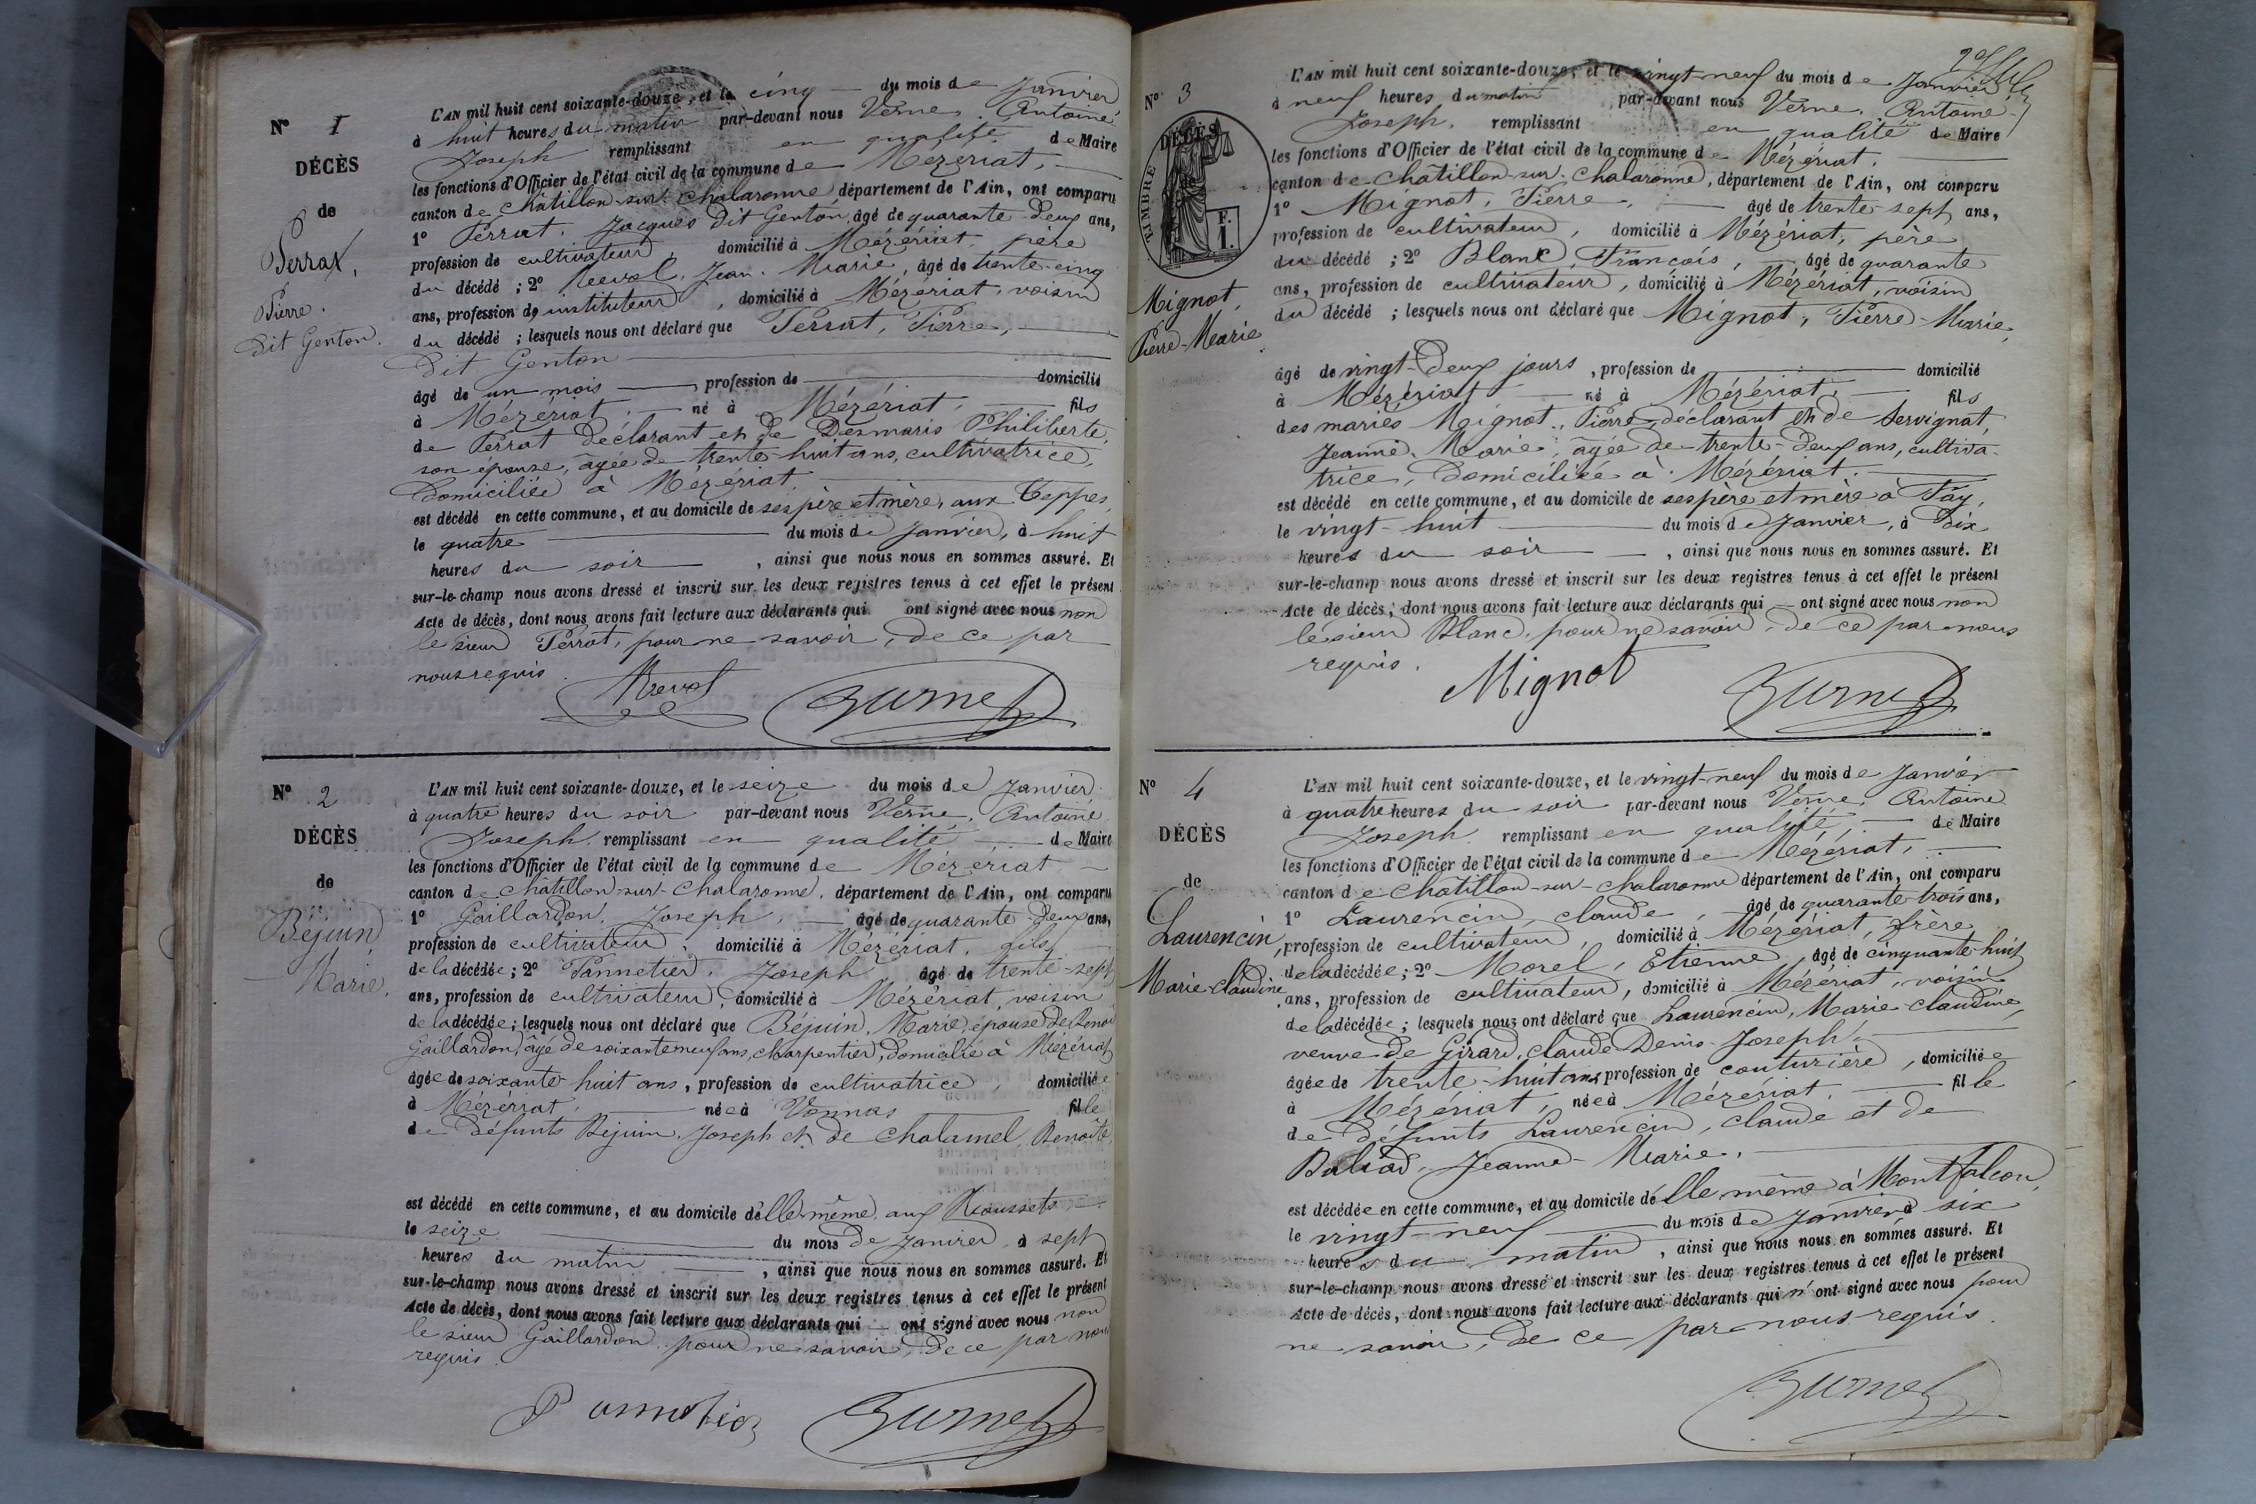 N° 1
DÉCÈS
de
Perrat,
Pierre.
Dit Genton.
L'AN mil huit cent soixante-douze, et le cinq du mois de Janvier
à huit heures du matin par-devant nous Verne, Antoine
Joseph remplissant en qualité de Maire
les fonctions d'Officier de l'état civil de la commune de Mézériat,
canton de Châtillon-sur-Chalaronne, département de l'Ain, ont comparu
1° Perrat, Jacques Dit Genton, âgé de quarante-deux ans,
profession de cultivateur domicilié à Mézériat, père
du décédé ; 2° Revol, Jean-Marie, âgé de trente-cinq
ans, profession de instituteur, domicilié à Mézériat, voisin
du décédé ; lesquels nous ont déclaré que Perrat, Pierre,
Dit Genton
âgé de un mois, profession de domicilié
à Mézériat, né à Mézériat, fils
de Perrat déclarant et de Desmaris Philiberte,
son épouse, âgée de trente-huit ans, cultivatrice,
Domiciliée à Mézériat
est décédé en cette commune, et au domicile de ses père et mère, aux Teppes,
le quatre du mois de Janvier, à huit
heures du soir, ainsi que nous nous en sommes assuré. Et
sur-le-champ nous avons dressé et inscrit sur les deux registres tenus à cet effet le présent
Acte de décès, dont nous avons fait lecture aux déclarants qui ont signé avec nous non
le sieur Perrat, pour ne savoir, de ce par
nous requis.
Revol
N° 2
DÉCÈS
de
Béjuin
Marie.
L'AN mil huit cent soixante-douze, et le seize du mois de Janvier
à quatre heures du soir par-devant nous Verne, Antoine
Joseph remplissant en qualité de Maire
les fonctions d'Officier de l'état civil de la commune de Mézériat
canton de Châtillon-sur-Chalaronne, département de l'Ain, ont comparu
1° Gaillardon, Joseph, âgé de quarante-deux ans,
profession de cultivateur, domicilié à Mézériat, fils
de la décédée ; 2° Pannetier, Joseph, âgé de trente-sept
ans, profession de cultivateur, domicilié à Mézériat, voisin
de la décédée ; lesquels nous ont déclaré que Béjuin, Marie, épouse de Benoit
Gaillardon, âgé de soixante neuf ans, charpentier, domicilié à Mézériat
âgée de soixante huit ans, profession de cultivatrice, domiciliée
à Mézériat, née à Vonnas fille
de défunts Béjuin, Joseph et de Chalamel, Benoîte,
est décédé en cette commune, et au domicile d'elle-même, aux Moussets,
le seize du mois de Janvier, à sept
heures du matin, ainsi que nous nous en sommes assuré. Et
sur-le-champ nous avons dressé et inscrit sur les deux registres tenus à cet effet le présent
Acte de décès, dont nous avons fait lecture aux déclarants qui ont signé avec nous non
le sieur Gaillardon pour ne savoir, de ce par nous
requis.
Pannetier
N° 3
TIMBRE
DÉCÈS
de
F.
I.
Mignot,
Pierre-Marie.
L'AN mil huit cent soixante-douze, et le vingt-neuf du mois de Janvier
à neuf heures du matin par-devant nous Verne, Antoine
Joseph, remplissant en qualité de Maire
les fonctions d'Officier de l'état civil de la commune de Mézériat,
canton de Châtillon-sur-Chalaronne, département de l'Ain, ont comparu
1° Mignot, Pierre, âgé de trente-sept ans,
profession de cultivateur, domicilié à Mézériat, père
du décédé ; 2° Blanc, François, âgé de quarante
ans, profession de cultivateur, domicilié à Mézériat, voisin
du décédé ; lesquels nous ont déclaré que Mignot, Pierre-Marie,
âgé de vingt-deux jours, profession de domicilié
à Mézériat né à Mézériat, fils
des mariés Mignot, Pierre, déclarant et de Servignat,
Jeanne Marie, âgée de trente-deux ans, cultiva-
trice, Domiciliée à Mézériat.
est décédé en cette commune, et au domicile de ses père et mère à Fay,
le vingt-huit du mois de Janvier, à Dix
heures du soir, ainsi que nous nous en sommes assuré. Et
sur-le-champ nous avons dressé et inscrit sur les deux registres tenus à cet effet le présent
Acte de décès, dont nous avons fait lecture aux déclarants qui ont signé avec nous non
le sieur Blanc, pour ne savoir, de ce par nous
requis.
Mignot
N° 4
DÉCÈS
de
Laurencin,
Marie-Claudine
L'AN mil huit cent soixante-douze, et le vingt-neuf du mois de Janvier
à quatre heures du soir par-devant nous Verne, Antoine
Joseph, remplissant en qualité, de Maire
les fonctions d'Officier de l'état civil de la commune de Mézériat,
canton de Châtillon-sur-Chalaronne département de l'Ain, ont comparu
1° Laurencin, Claude, âgé de quarante trois ans,
profession de cultivateur, domicilié à Mézériat, frère
de la décédée ; 2° Morel, Etienne, âgé de cinquante-huit
ans, profession de cultivateur, domicilié à Mézériat, voisin
de la décédée ; lesquels nous ont déclaré que Laurencin, Marie-Claudine,
veuve de Girard, Claude-Denis-Joseph,
âgée de trente-huit ans, profession de couturière, domiciliée
à Mézériat, née à Mézériat, fille
de défunts Laurencin, Claude et de
Jeanne-Marie.
est décédée en cette commune, et au domicile d'elle même à Montfalcon,
le vingt-neuf du mois de Janvier à six
heures du matin, ainsi que nous nous en sommes assuré. Et
sur-le-champ nous avons dressé et inscrit sur les deux registres tenus à cet effet le présent
Acte de décès, dont nous avons fait lecture aux déclarants qui n'ont signé avec nous pour
ne savoir, de ce par nous requis.